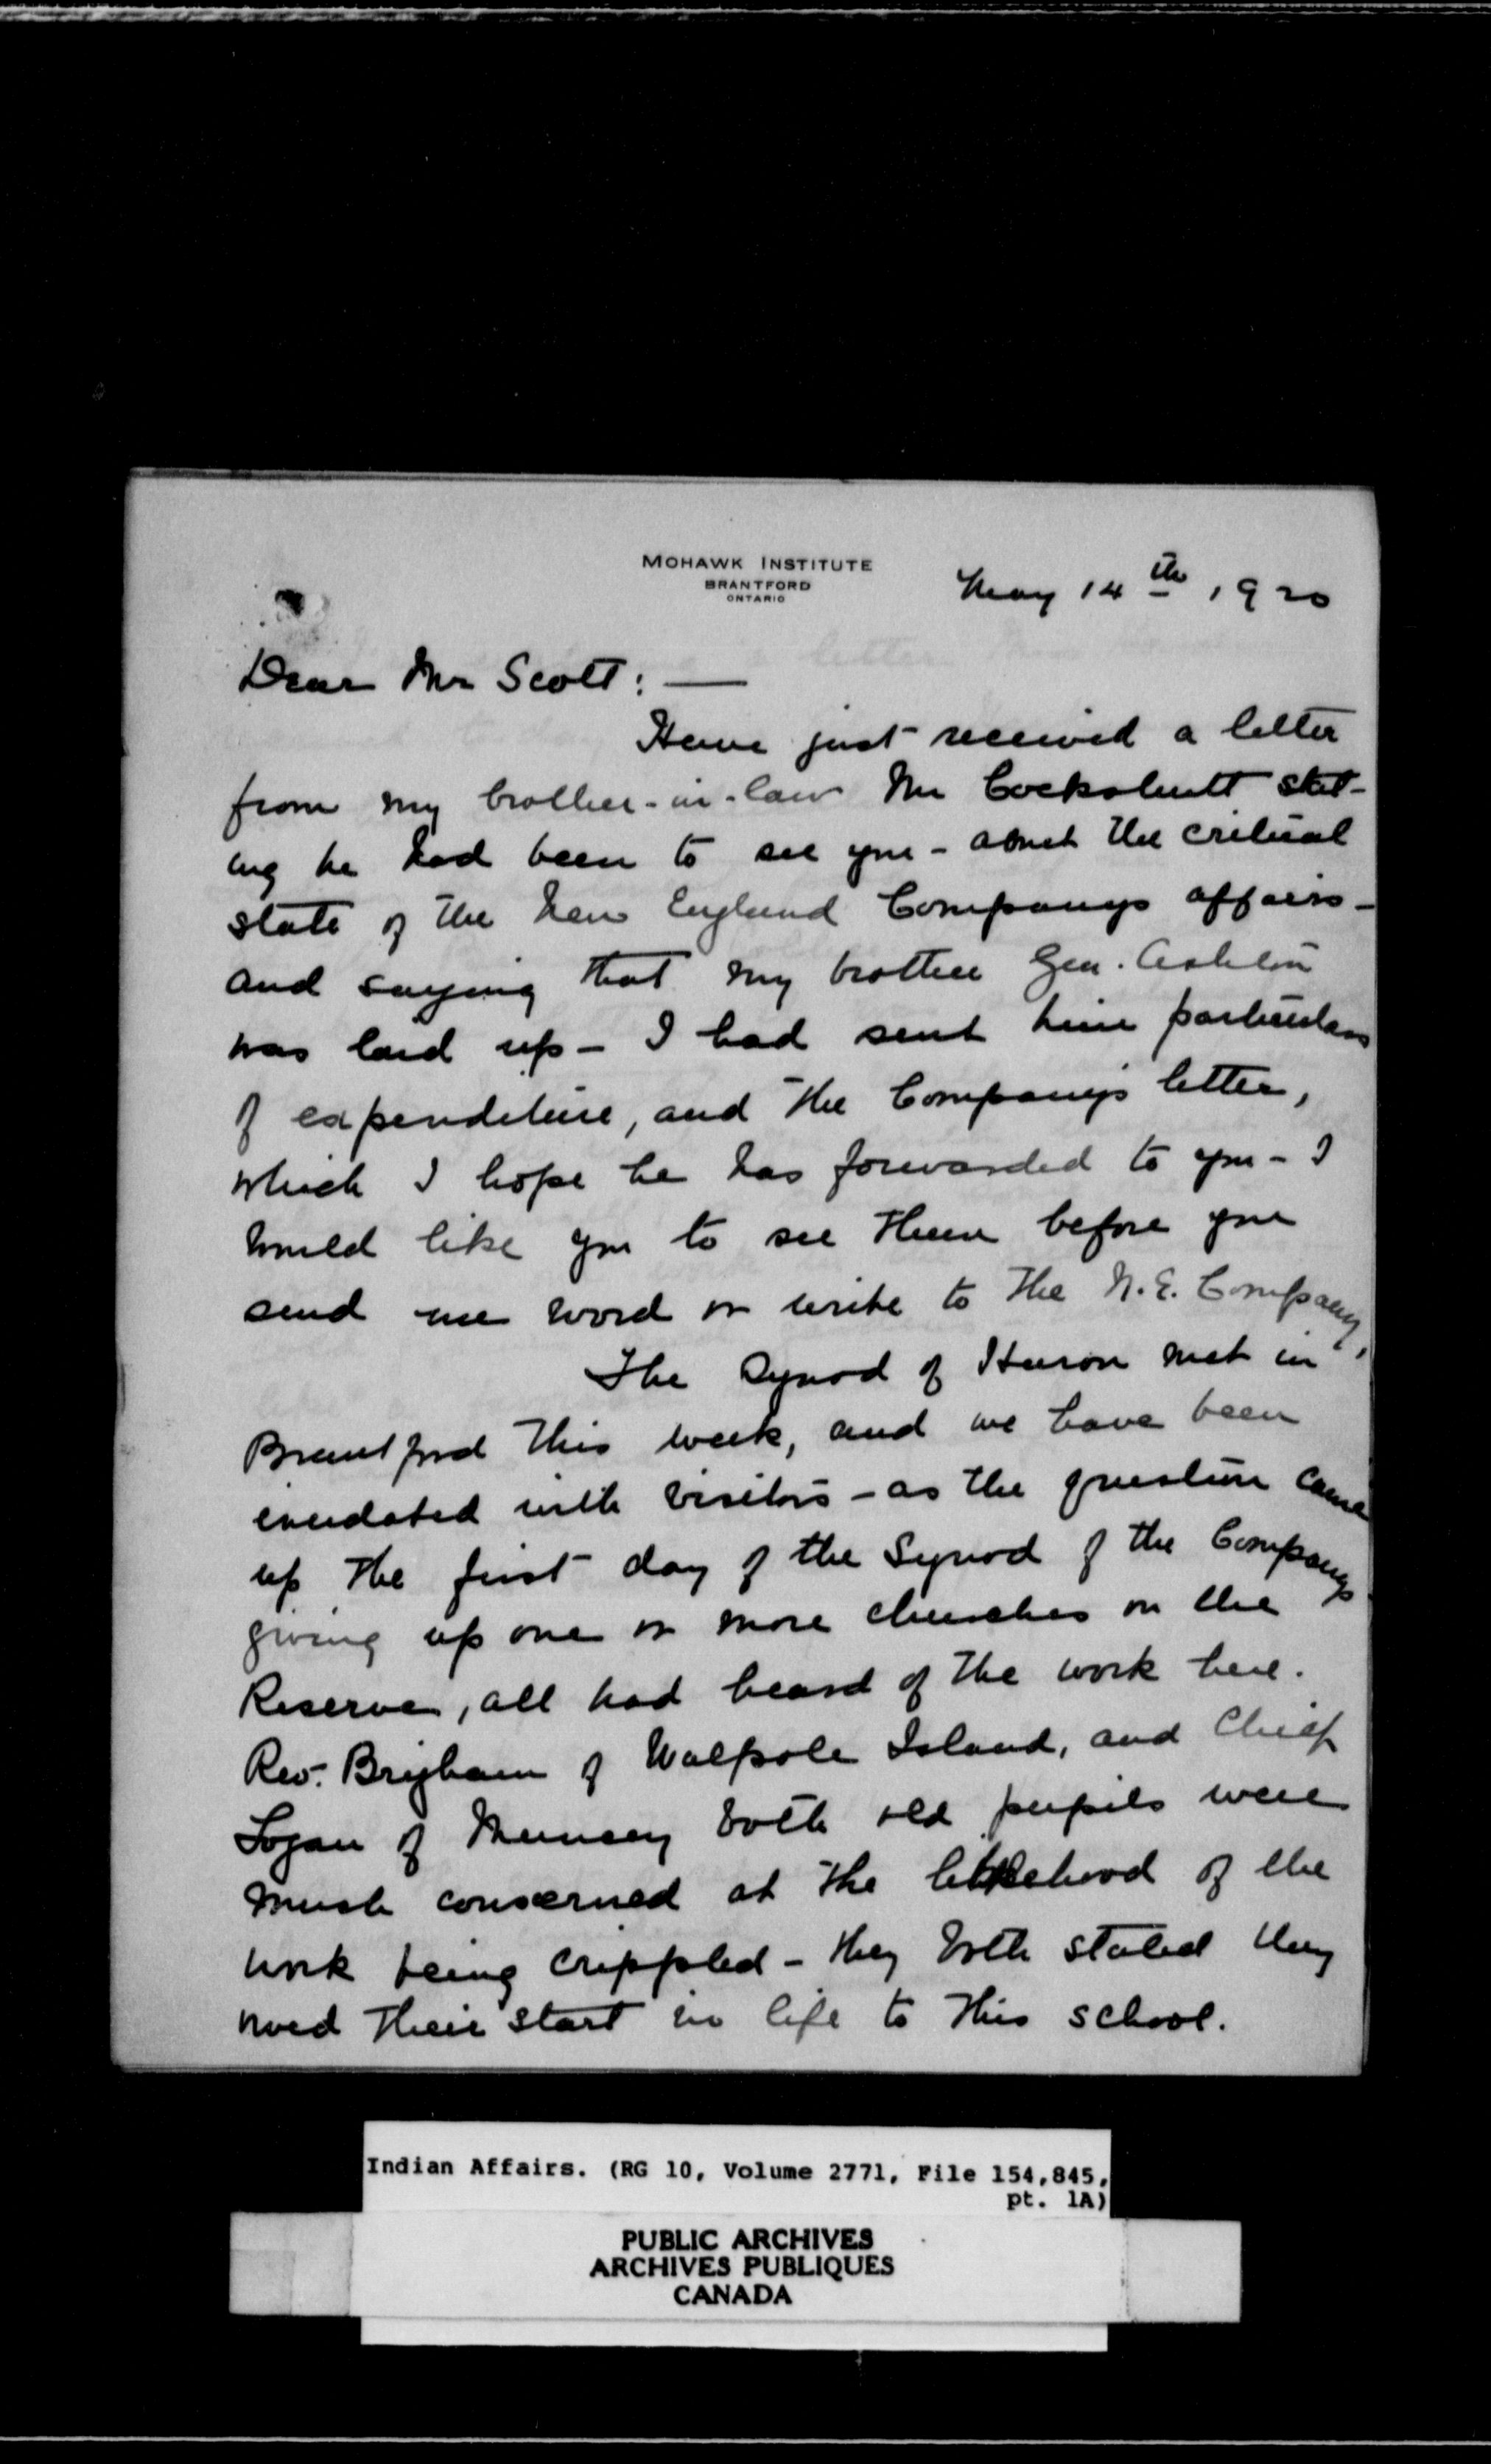 MOHAWK INSTITUTE
BRANTFORD
ONTARIO
May 14th 1920
Dear Mr Scott: —
Have just received a letter
from my brother-in-law Mr Cockshutt stat-
ing he had been to see you - about the critical
state of the New England Companys affairs -
and saying that my brother Gen. Ashton
was laid up - I had sent him particulars
of expenditure, and the Company's letter,
which I hope he has forwarded to you - I
would like you to see them before you
send me word or write to the N.E. Company,
The Synod of Huron met in
Brantford this week, and we have been
inundated with visitors - as the question came
up the first day of the Synod of the Companys
giving up one or more churches on the
Reserve, all had heard of the work here.
Rev. Brigham of Walpole Island, and Chief
Logan of Muncey both old pupils were
much concerned at the likelihood of the
work being crippled - they both stated they
owed their start in life to this school.
Indian Affairs. (RG 10, Volume 2771, File 154,845,
pt. 1A)
PUBLIC ARCHIVES
ARCHIVES PUBLIQUES
CANADA